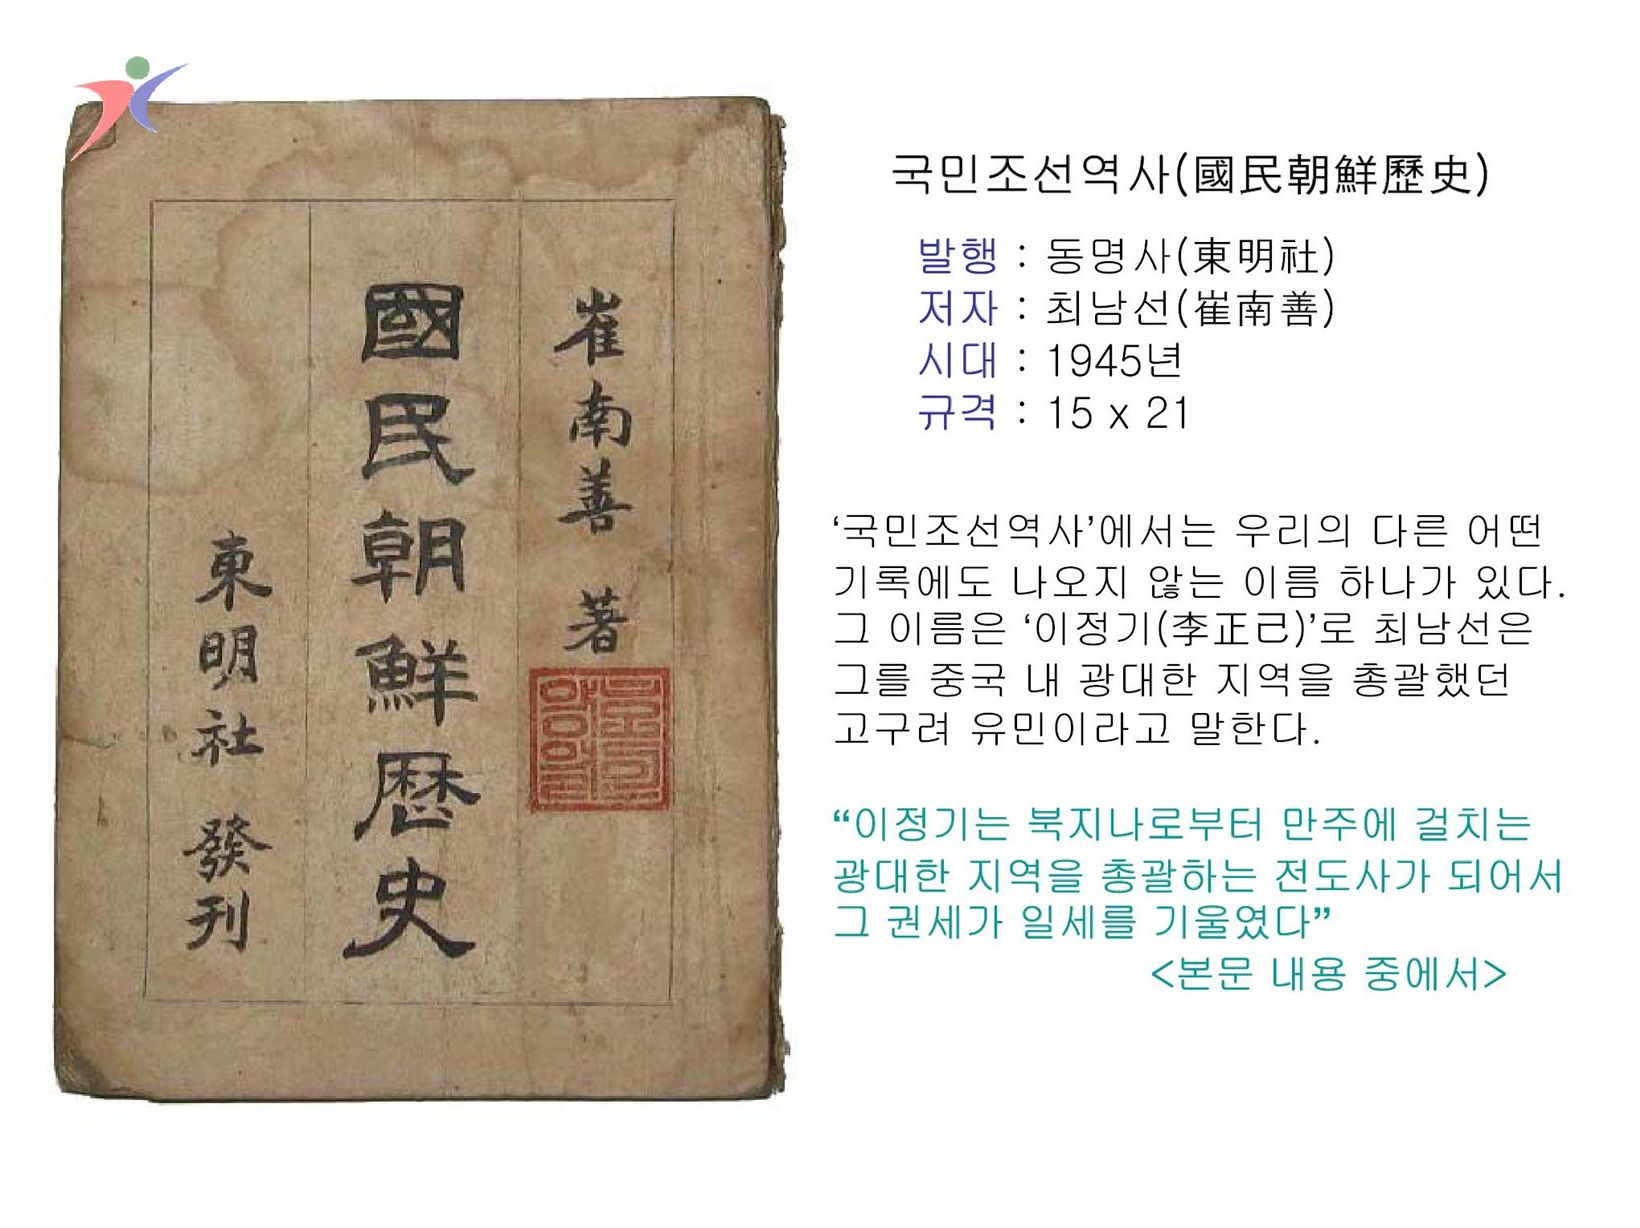 崔南善 著
國民朝鮮歷史
東明社 發刊
국민조선역사(國民朝鮮歷史)
발행 : 동명사(東明社)
저자 : 최남선(崔南善)
시대 : 1945년
규격 : 15 x 21
‘국민조선역사’에서는 우리의 다른 어떤
기록에도 나오지 않는 이름 하나가 있다.
그 이름은 ‘이정기(李正己)’로 최남선은
그를 중국 내 광대한 지역을 총괄했던
고구려 유민이라고 말한다.
“이정기는 북지나로부터 만주에 걸치는
광대한 지역을 총괄하는 전도사가 되어서
그 권세가 일세를 기울였다”
<본문 내용 중에서>